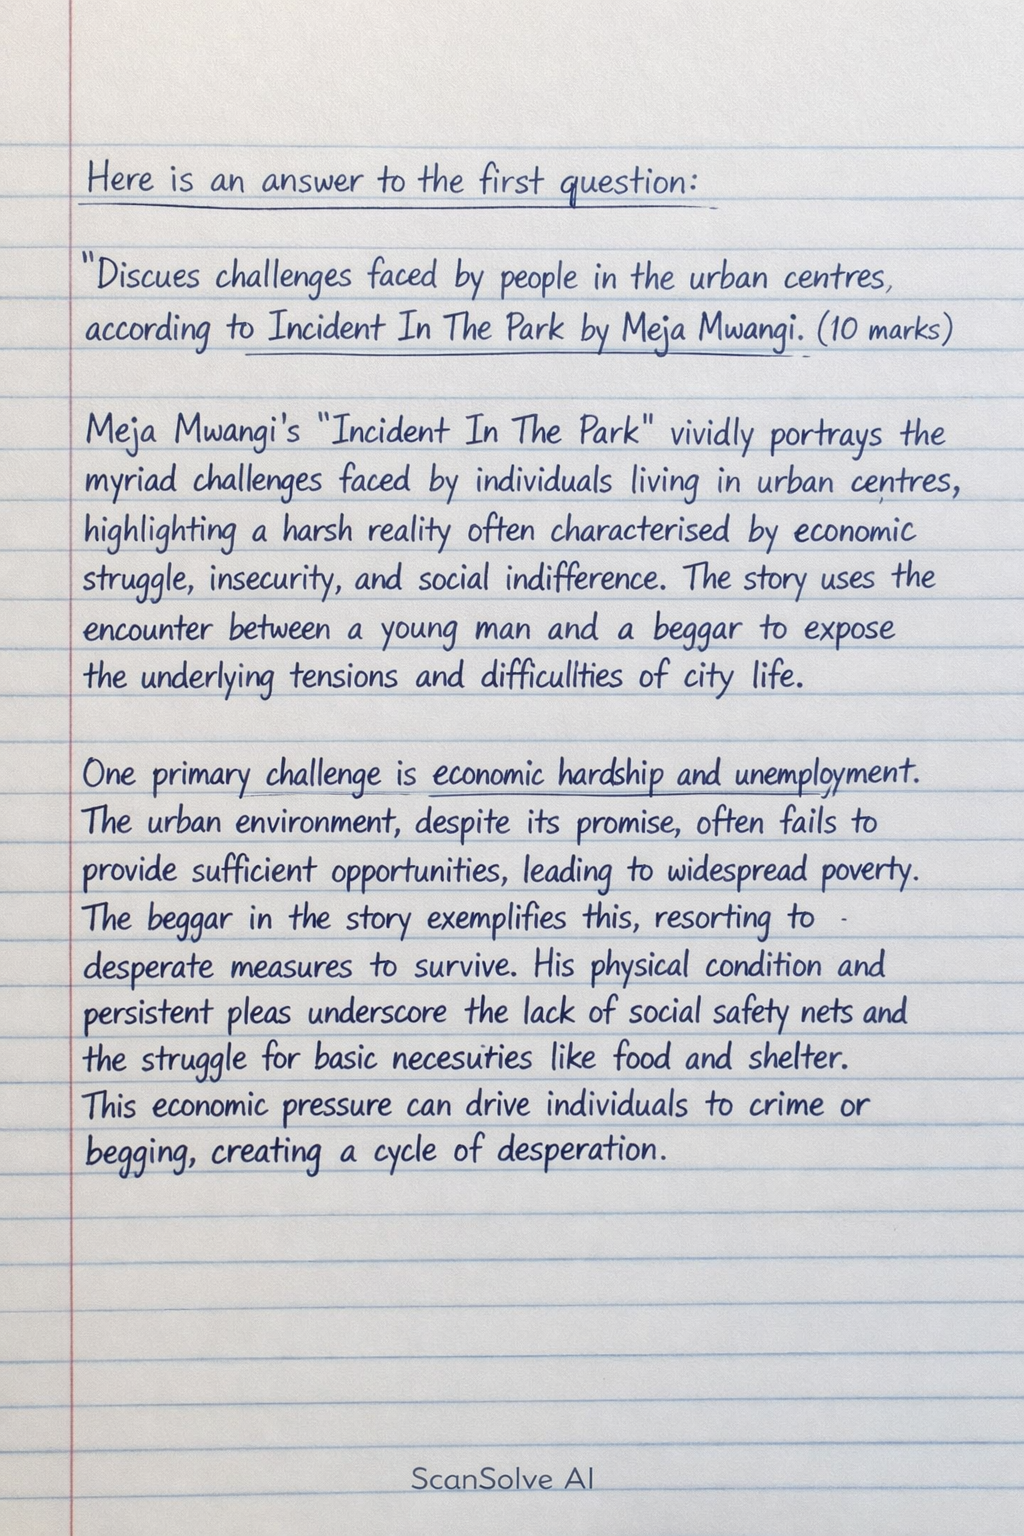 Here is an answer to the first question:
"Discues challenges faced by people in the urban centres,
according to Incident In The Park by Meja Mwangi. (10 marks)
Meja Mwangi's "Incident In The Park" vividly portrays the
myriad challenges faced by individuals living in urban centres,
highlighting a harsh reality often characterised by economic
struggle, insecurity, and social indifference. The story uses the
encounter between a young man and a beggar to expose
the underlying tensions and difficulities of city life.
One primary challenge is economic hardship and unemployment.
The urban environment, despite its promise, often fails to
provide sufficient opportunities, leading to widespread poverty.
The beggar in the story exemplifies this, resorting to -
desperate measures to survive. His physical condition and
persistent pleas underscore the lack of social safety nets and
the struggle for basic necesuties like food and shelter.
This economic pressure can drive individuals to crime or
begging, creating a cycle of desperation.
ScanSolve AI